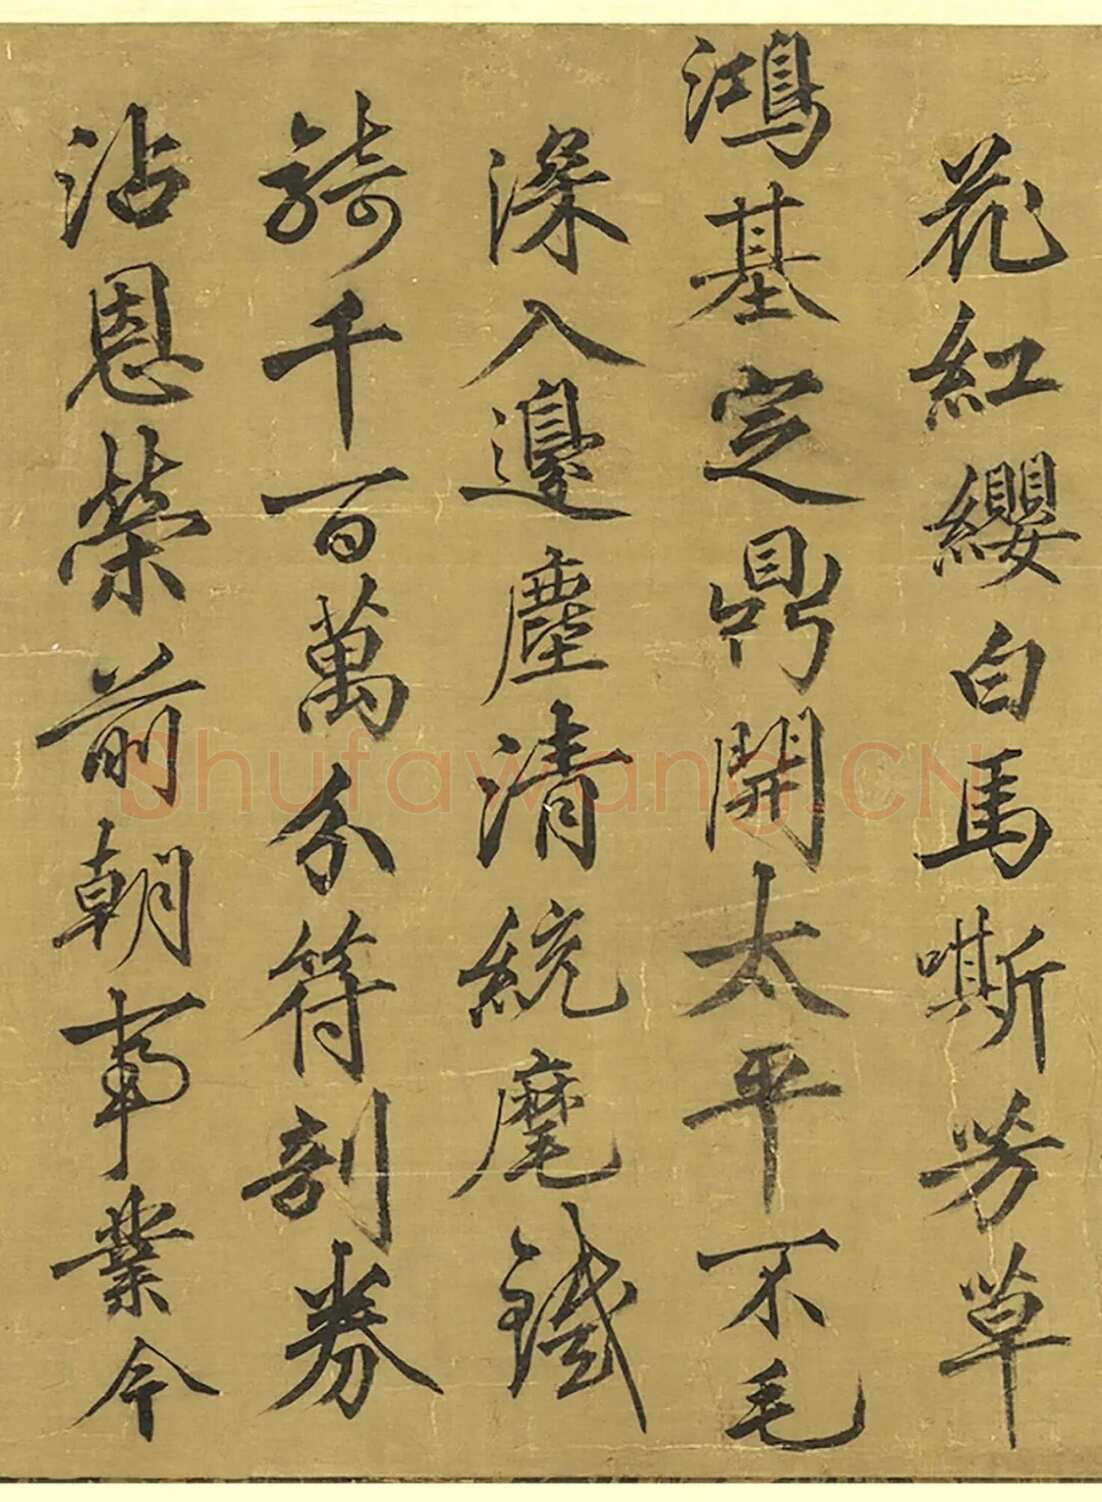 花紅纓白馬嘶芳草
鴻基定鼎開太平不毛
深入邊塵清統麾鐵
騎千百萬分符剖券
沾恩榮前朝事業今
Shufawang.CN